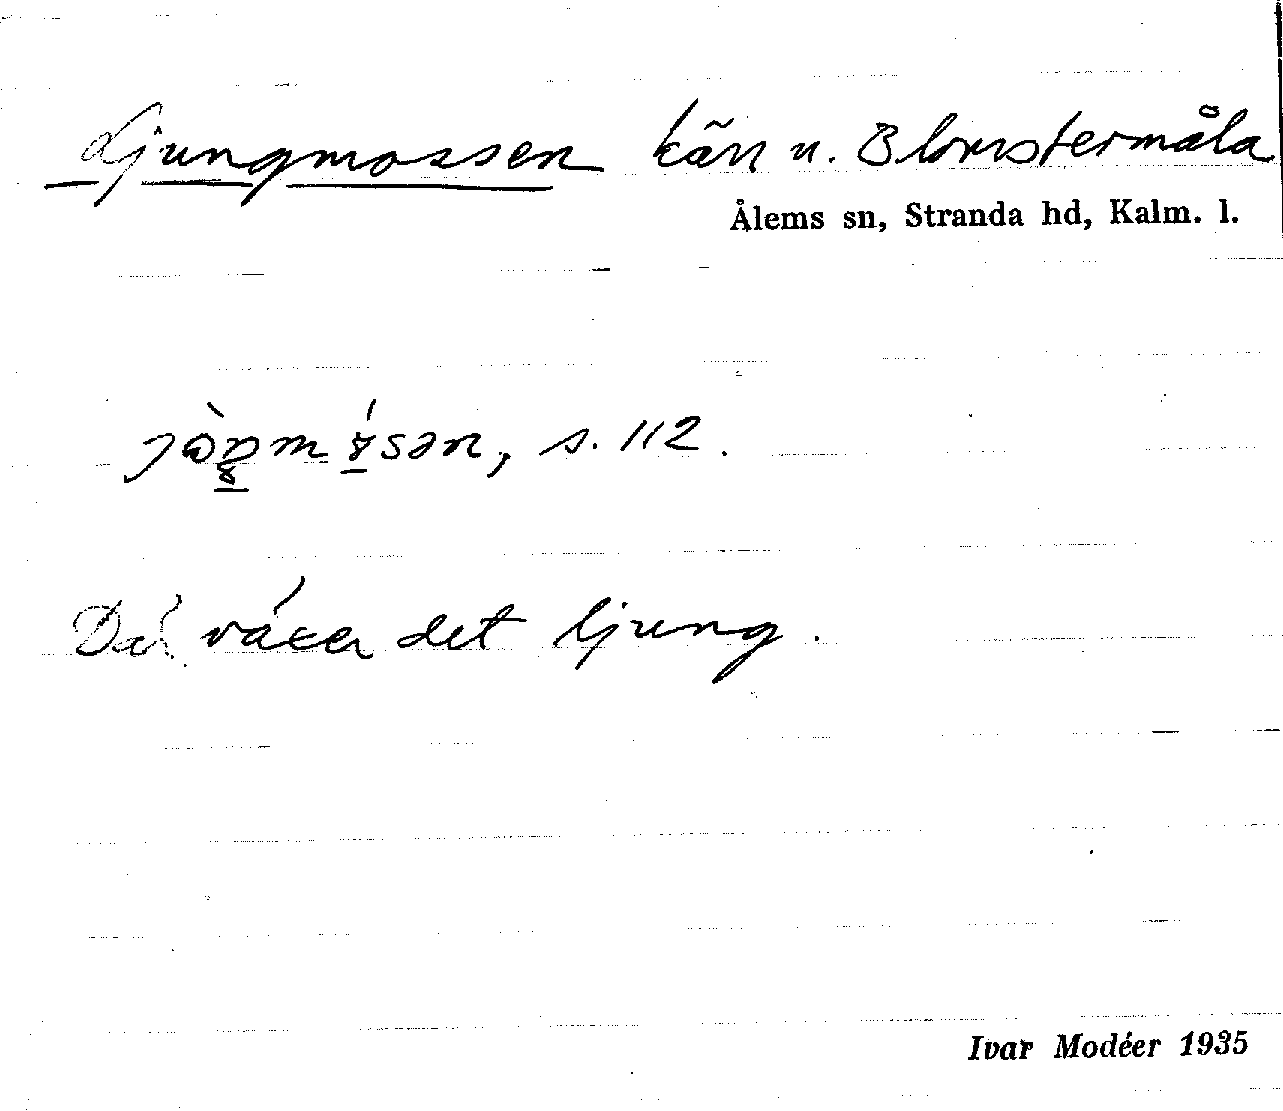 Ljungmossen kärr u. Blomstermåla
Ålems sn, Stranda hd, Kalm. l.
s. 112.
Där växer det ljung.
Ivar Modéer 1935